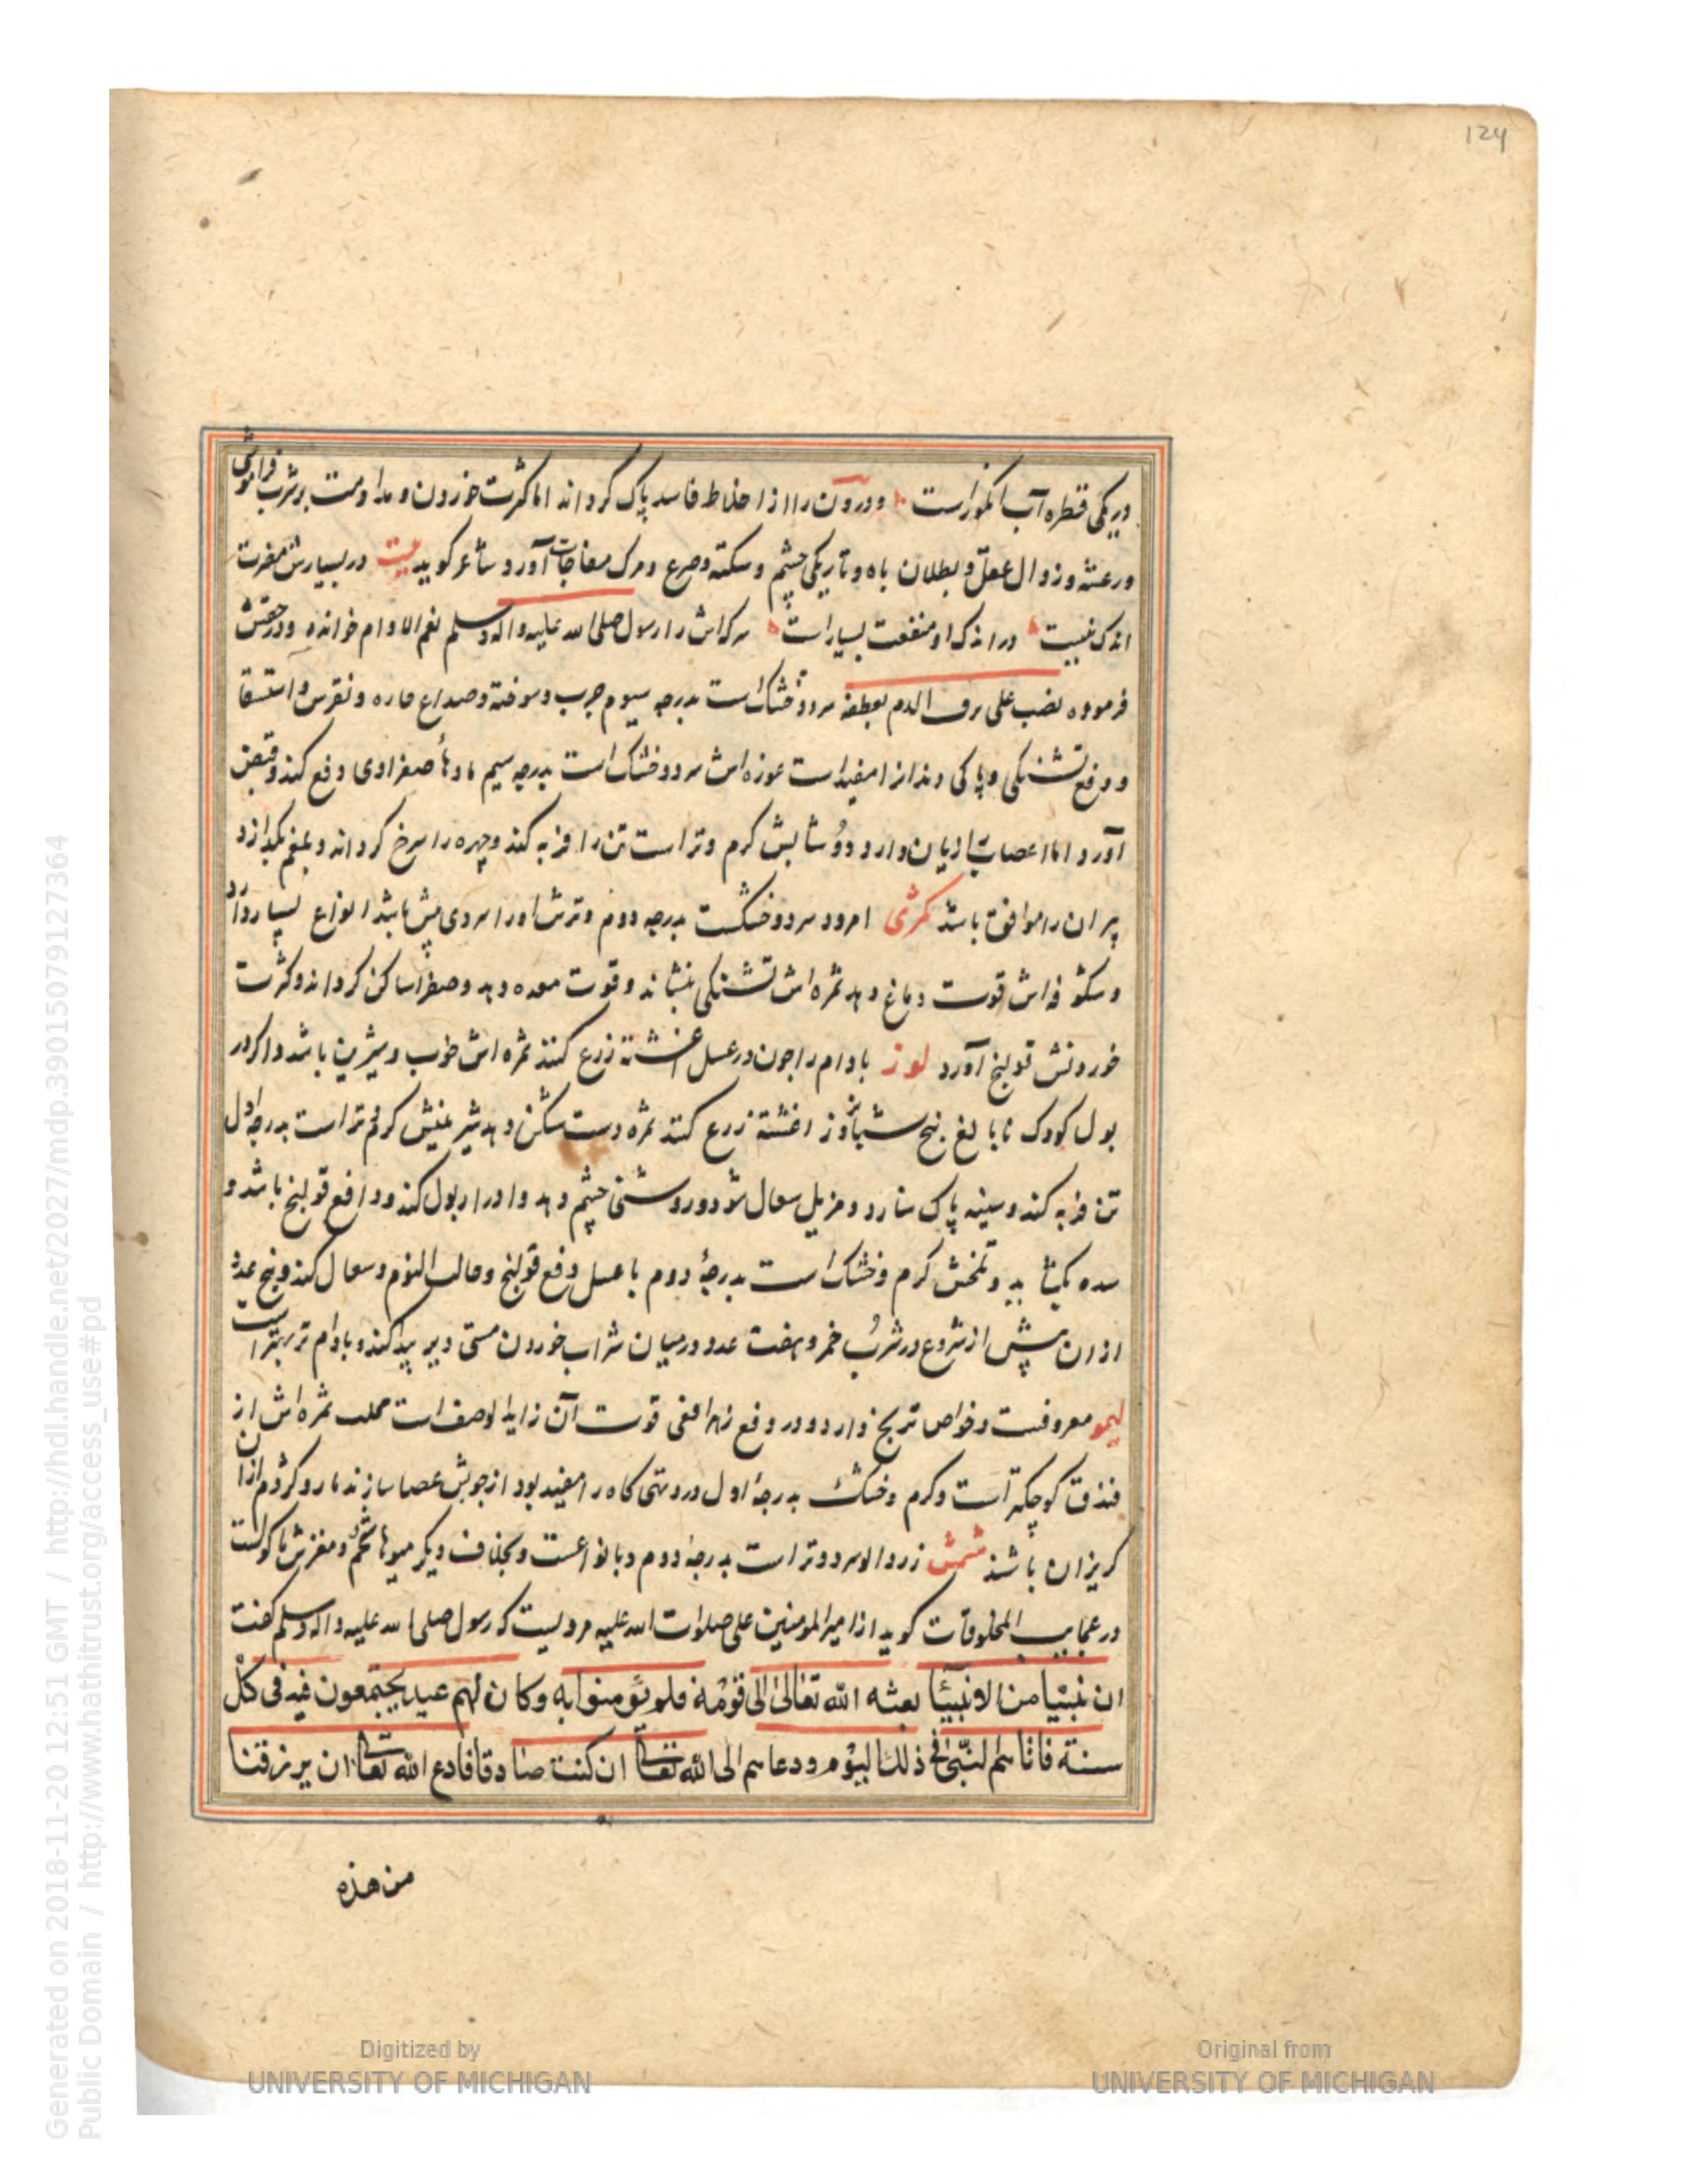 124
در یکی قطره آب انکور است ودرون را از اخلاط فاسد پاک کرداند اما کثرت خوردن و مداومت بر شرب فراموشی
ورعشه وزوال عقل و بطلان باه و تاریکی چشم وسکته وصرع ومرک مفاجات آورد شاعر کوید بیت در بسیارش مضرت
اندک نیست در اندک او منفعت بسیار است سرکه اش را رسول صلی الله علیه واله وسلم نعم الادام خوانده ودر حقش
فرموده علی الدم سرد وخشک است بدرجه سیوم جرب وسوخته وصداع حاره ونقرس واستسقا
ودفع تشنکی و مفید است غوزه اش سرد وخشک است بدرجه سیم مادهٔ صفراوی دفع کند وقبض
آورد اما اعصاب را زیان دارد ودوشابش کرم وتر است تن را فربه کند وچهره را سرخ کرداند وبلغم بکدازد
پیران را موافق باشد کمثری امرود سرد وخشکست بدرجه دوم وترش اورا سردی بیش باشد انواع بسیار دارد
وشکوفه اش قوت دماغ دهد ثمره اش تشنکی بنشاند وقوت معده دهد وصفرا ساکن کرداند وکثرت
خوردنش قولنج آورد لوز بادام را چون در عسل اغشته زرع کنند ثمره اش خوب وشیرین باشد واکر در
بول کودک نابالغ پنج شبانروز اغشته زرع کنند ثمره دست شکن دهد شیرینش کرم وتر است بدرجه اول
تن فربه کند وسینه پاک سازد ومزیل سعال شود وروشنی چشم دهد وادرار بول کند ودافع قولنج باشد و
سده بکشاید وتلخش کرم وخشک است بدرجهٔ دوم با عسل دفع قولنج وجالب النوم وسعال کند وپنج عدد
ازان پیش از شروع در شرب خمر وهفت عدد در میان شراب خوردن مستی دیر پیدا کند وبادام تر بهتر است
لیمو معروفست وخواص ترنج دارد ودر دفع زهر افعی قوت آن زاید الوصف است محلب ثمره اش از
فندق کوچکتر است وکرم وخشک بدرجهٔ اول درد تهی کاه را مفید بود از چوبش عصا سازند مار وکژدم ازان
کریزان باشند مشمش زردالو سرد وتر است بدرجهٔ دوم وبانواعست وبخلاف دیکر میوها تخم ومغزش ماکولست
در عجایب المخلوقات کوید از امیر المومنین علی صلوات الله علیه مرویست که رسول صلی الله علیه واله وسلم کفت
ان نبیّا من الانبیٓا بعثه الله تعالیٰ الی قومه فلم یؤمنوا به وکان لهم عید یجتمعون فیه فی کل
سنة فاتاهم النبّی فی ذلک الیوم ودعاهم الی الله تعالی ان کنت صادقا فادع الله تعالی ان یرزقنا
من هذه
Generated on 2018-11-20 12:51 GMT / http://hdl.handle.net/2027/mdp.39015079127364
Public Domain / http://www.hathitrust.org/access_use#pd
Digitized by
UNIVERSITY OF MICHIGAN
Original from
UNIVERSITY OF MICHIGAN